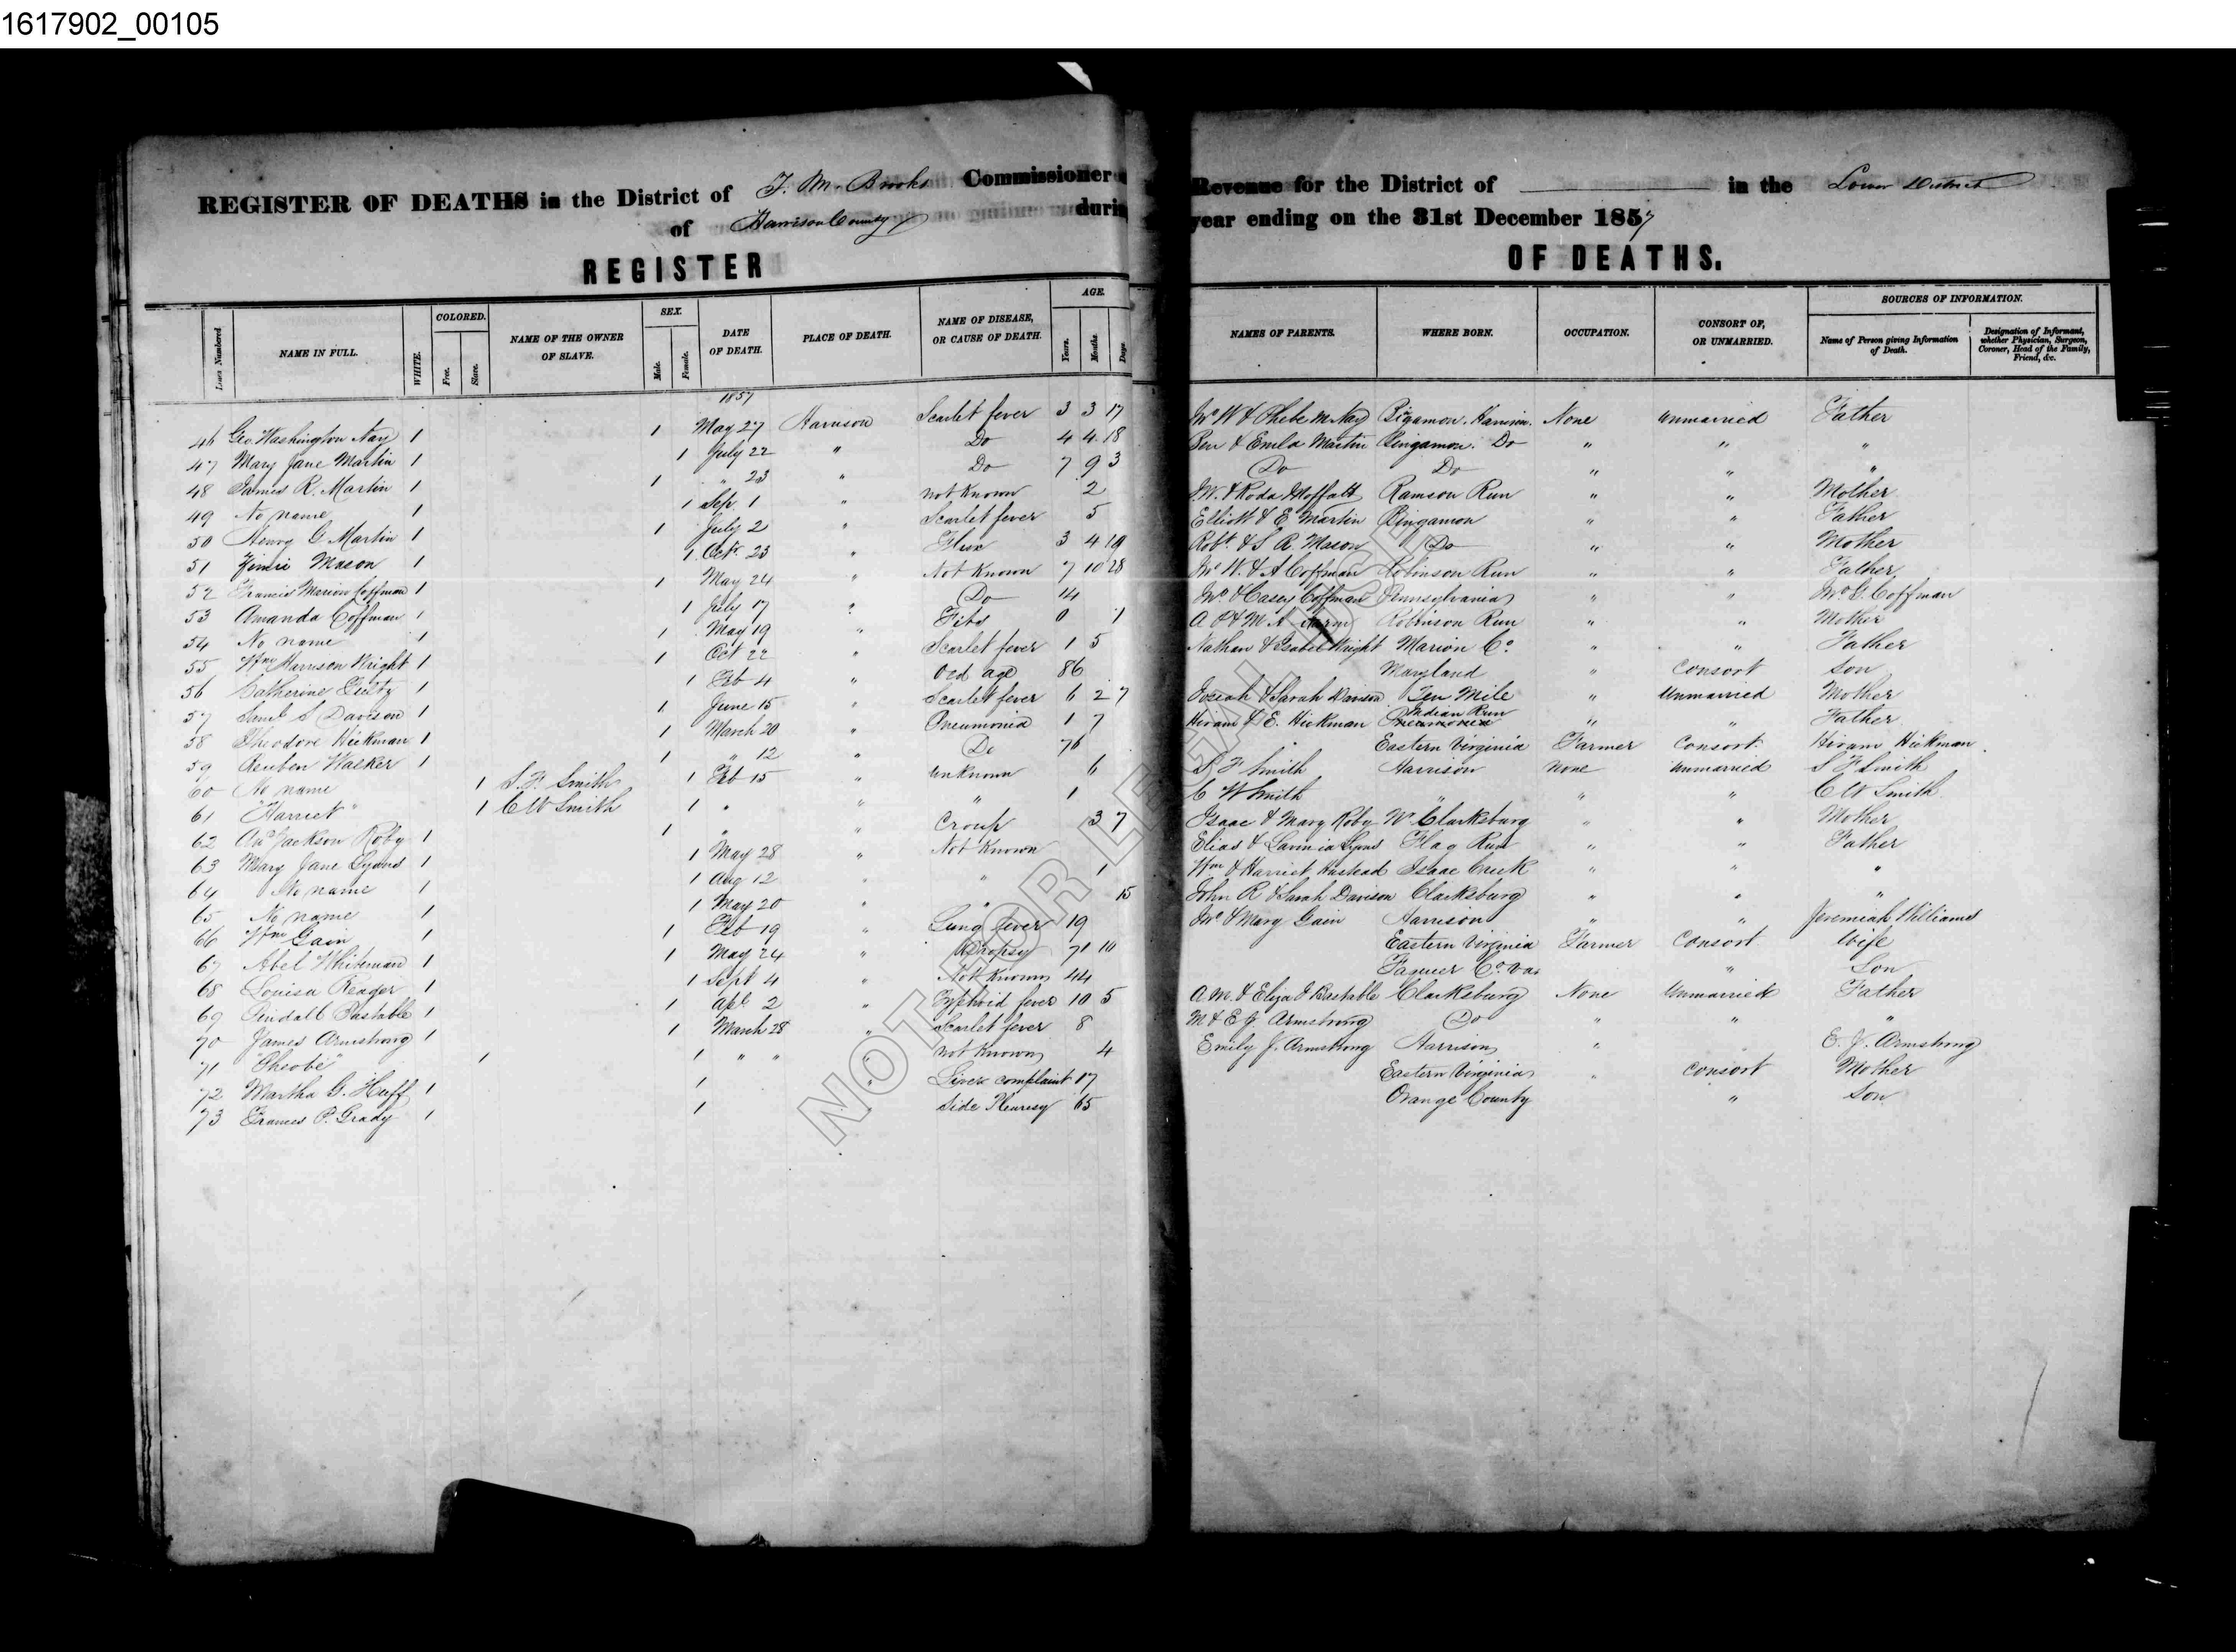 1617902_00105
REGISTER OF DEATHS in the District of T. M. Brooks Commissioner
of Harrison County during
REGISTER
Revenue for the District of in the Lower District
year ending on the 31st December 1857
OF DEATHS.
Lines Numbered NAME IN FULL. WHITE. COLORED. Free. Slave. NAME OF THE OWNER OF SLAVE. SEX. Male. Female. DATE OF DEATH. PLACE OF DEATH. NAME OF DISEASE, OR CAUSE OF DEATH. AGE. Years. Months. Days.
NAMES OF PARENTS. WHERE BORN. OCCUPATION. CONSORT OF, OR UNMARRIED. SOURCES OF INFORMATION. Name of Person giving Information of Death. Designation of Informant, whether Physician, Surgeon, Coroner, Head of the Family, Friend, &c.
1857
46 Geo. Washington Nay 1 1 May 27 Harrison Scarlet fever 3 3 17 Jno W & Phebe M Nay Bigamon. Harrison. None Unmarried Father
47 Mary Jane Martin 1 1 July 22 " Do 4 4 18 Ben & Emila Martin Bingamon. Do " " "
48 James R. Martin 1 1 " 23 " Do 7 9 3 Do Do " " "
49 No name 1 1 Sep. 1 " not known 2 M. & Roda Moffatt Ramson Run " " Mother
50 Henry C Martin 1 1 July 2 " Scarlet fever 5 Elliott & E Martin Bingamon " " Father
51 Mason 1 1 Oct. 23 " Flux 3 4 19 Robt. & S. A. Mason Do " " Mother
52 Francis Marion Coffman 1 1 May 24 " Not Known 7 10 28 Jno W. & A Coffman Robinson Run " " Father
53 Amanda Coffman 1 1 July 17 " Do 14 Jno & Casey Coffman Pennsylvania " " Jno G. Coffman
54 No name 1 1 May 19 " Fits 0 1 A P & M A Robinson Run " " Mother
55 Wm Harrison Wright 1 1 Oct 22 " Scarlet fever 1 5 Nathan & Isabel Wright Marion Co. " " Father
56 Catherine 1 1 Feb 4 " Old age 86 Maryland " Consort Son
57 Saml S Davison 1 1 June 15 " Scarlet fever 6 2 7 Josiah & Sarah Davison Ten Mile " Unmarried Mother
58 Theodore Hickman 1 1 March 20 " Pneumonia 1 7 Hiram & E. Hickman Indian Run Pneumonia " " Father
59 Reuben Walker 1 1 " 12 " Do 76 Eastern Virginia Farmer Consort. Hiram Hickman
60 No name 1 S. F. Smith 1 Feb 15 " unknown 6 S F Smith Harrison None Unmarried S F Smith
61 "Harriet" 1 C W Smith 1 " " " 1 C W Smith " " " C W Smith
62 Jackson Roby 1 1 " " Croup 3 7 Isaac & Mary Roby W. Clarksburg " " Mother
63 Mary Jane Lyons 1 1 May 28 " Not Known Elias & Lavinia Lyons Flag Run " " Father
64 No name 1 1 Aug 12 " " 1 Wm & Harriet Hustead Isaac Creek " " "
65 No name 1 1 May 20 " " 15 John R & Sarah Davison Clarksburg " " "
66 Wm Gain 1 1 Feb 19 " Lung fever 19 Jno & Mary Gain Harrison " " Jeremiah Williams
67 Abel Whiteman 1 1 May 24 " Dropsy 71 10 Eastern Virginia Farmer Consort Wife
68 Louisa Reager 1 1 Sept 4 " Not Known 44 Faquier Co. Va. " Son
69 Tindall Bastable 1 1 Apl. 2 " Typhoid fever 10 5 A M. & Eliza J Bastable Clarksburg None Unmarried Father
70 James Armstrong 1 1 March 28 " Scarlet fever 8 M & E J. Armstrong Do " " "
71 "Pheobe" 1 1 " " " not known 4 Emily J. Armstrong Harrison " E. J. Armstrong
72 Martha G. Huff 1 1 " Liver complaint 17 Eastern Virginia " Consort Mother
73 Frances P. Grady 1 1 Side Pleuresy 65 Orange County " Son
NOT FOR LEGAL USE